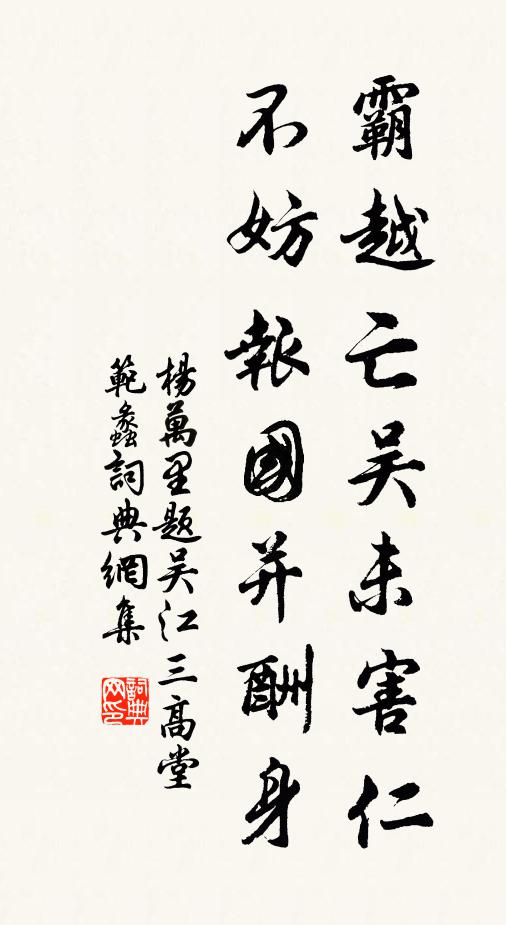 霸越亡吴未害仁
不妨報國并酬身
楊萬里题吴江三高堂
範蠡詞典網集
詞典
网印